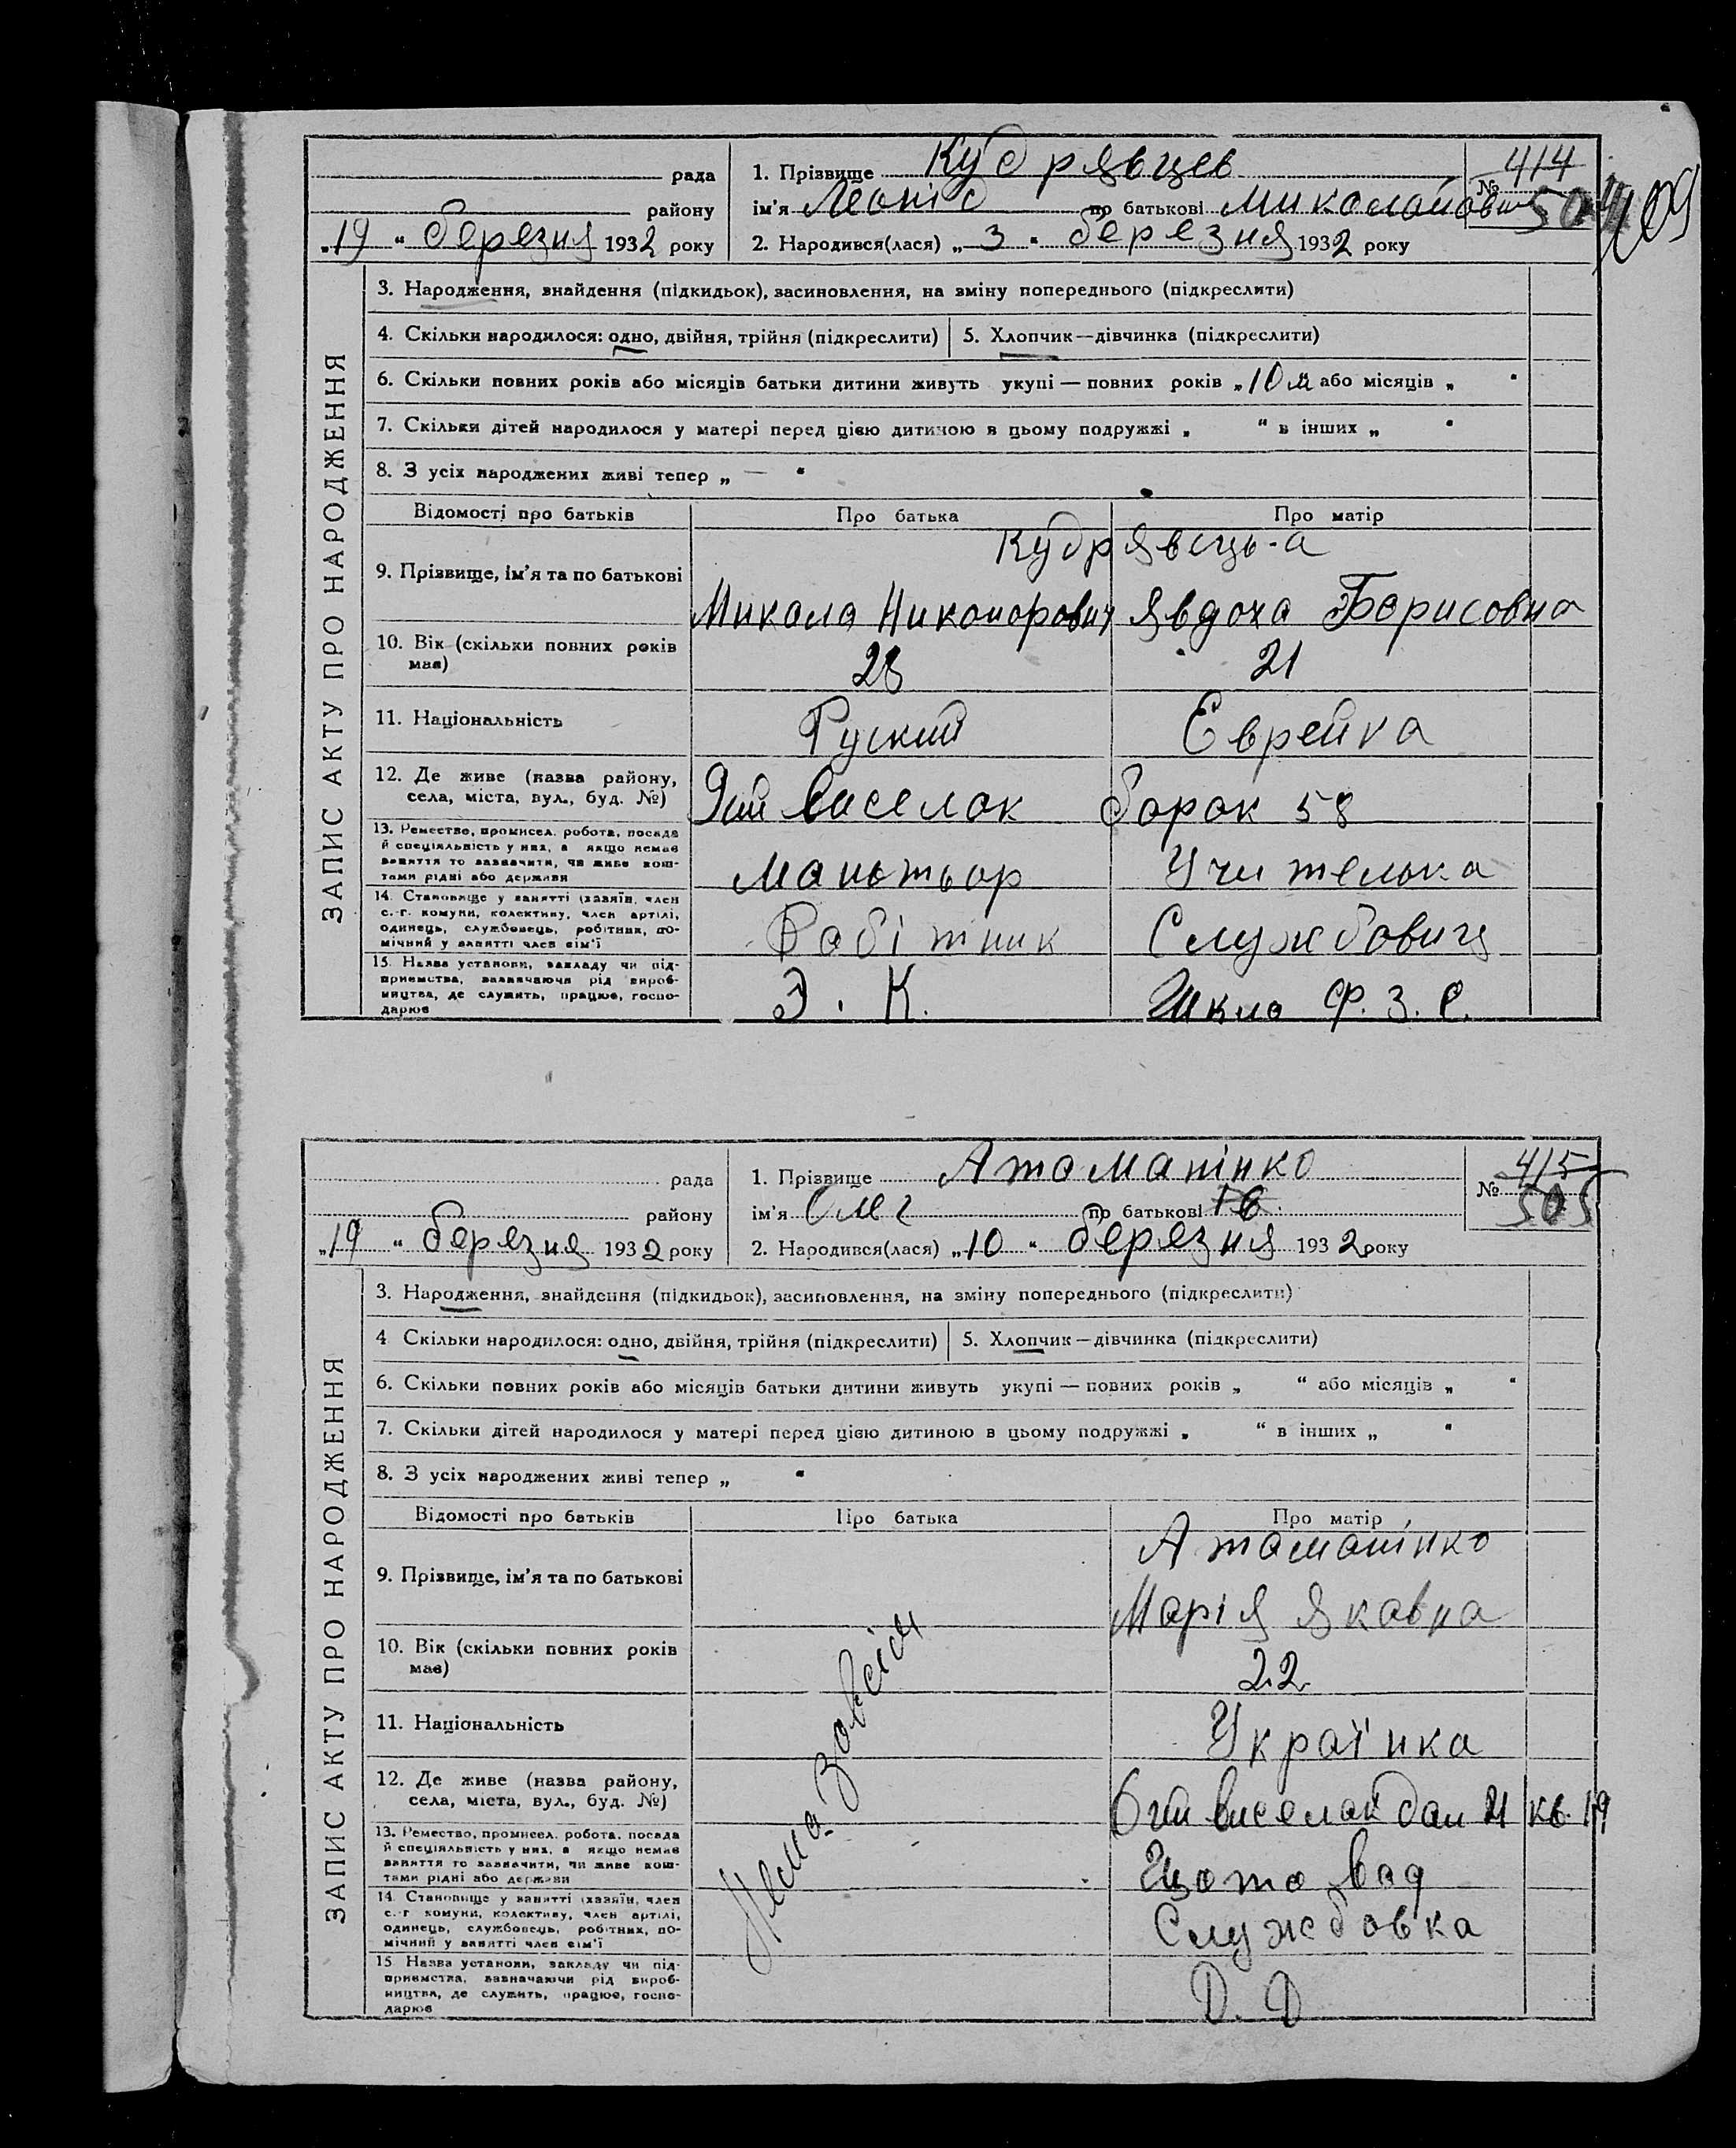 рада
району
„19" березня 1932 року
1. Прізвище Кудрявцев
ім'я Леонід по батькові Миколайович
2. Народився(лася) „3" березня 1932 року
№ 414
ЗАПИС АКТУ ПРО НАРОДЖЕННЯ
3. Народження, знайдення (підкидьок), засиновлення, на зміну попереднього (підкреслити)
4. Скільки народилося: одно, двійня, трійня (підкреслити) 5. Хлопчик—дівчинка (підкреслити)
6. Скільки повних років або місяців батьки дитини живуть укупі — повних років „10 м або місяців „ "
7. Скільки дітей народилося у матері перед цією дитиною в цьому подружжі „ " в інших „ "
8. З усіх народжених живі тепер „ — "
Відомості про батьків Про батька Про матір
Кудрявець-а
9. Прізвище, ім'я та по батькові Микола Никонорович Явдоха Борисовна
10. Вік (скільки повних років має) 28 21
11. Національність Руский Еврейка
12. Де живе (назва району, села, міста, вул., буд. №) 9ий виселок барок 58
13. Ремество, промисел, робота, посада й спеціяльність у них, а якщо немає заняття то зазначити, чи живе коштами рідні або держави Моньтьор Учителька
14. Становище у занятті (хазяїн, член с.-г. комуни, колективу, член артілі, одинець, службовець, робітник, помічний у занятті член сім'ї Робітник Службовиц
15. Назва установи, закладу чи підприємства, зазначаючи рід виробництва, де служить, працює, господарює Э. К. Шкло Ф. З. С.
рада
району
„19" березня 1932 року
1. Прізвище Атоманінко
ім'я Олег по батькові
2. Народився(лася) „10" березня 1932 року
№ 415
505
ЗАПИС АКТУ ПРО НАРОДЖЕННЯ
3. Народження, знайдення (підкидьок), засиновлення, на зміну попереднього (підкреслити)
4 Скільки народилося: одно, двійня, трійня (підкреслити) 5. Хлопчик—дівчинка (підкреслити)
6. Скільки повних років або місяців батьки дитини живуть укупі — повних років „ " або місяців „ "
7. Скільки дітей народилося у матері перед цією дитиною в цьому подружжі „ " в інших „ "
8. З усіх народжених живі тепер „ "
Відомості про батьків Про батька Про матір
Атоманінко
9. Прізвище, ім'я та по батькові Марія Яковна
10. Вік (скільки повних років має) 22
11. Національність Україінка
12. Де живе (назва району, села, міста, вул., буд. №) 6ий виселок дом 21 кв. 19
13. Ремество, промисел, робота, посада й спеціяльність у них, а якщо немає заняття то зазначити, чи живе коштами рідні або держави Щотовод
14. Становище у занятті (хазяїн, член с.-г комуни, колективу, член артілі, одинець, службовець, робітник, помічний у занятті член сім'ї Службовка
15 Назва установи, закладу чи підприємства, зазначаючи рід виробництва, де служить, працює, господарює Д. Д
Нема зовсім